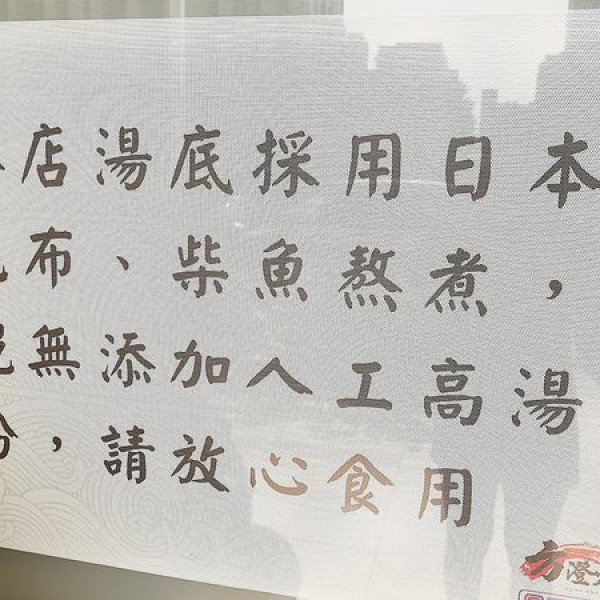 店湯底採用日本
布、柴魚熬煮，
無添加人工高湯
，請放心食用
方澄